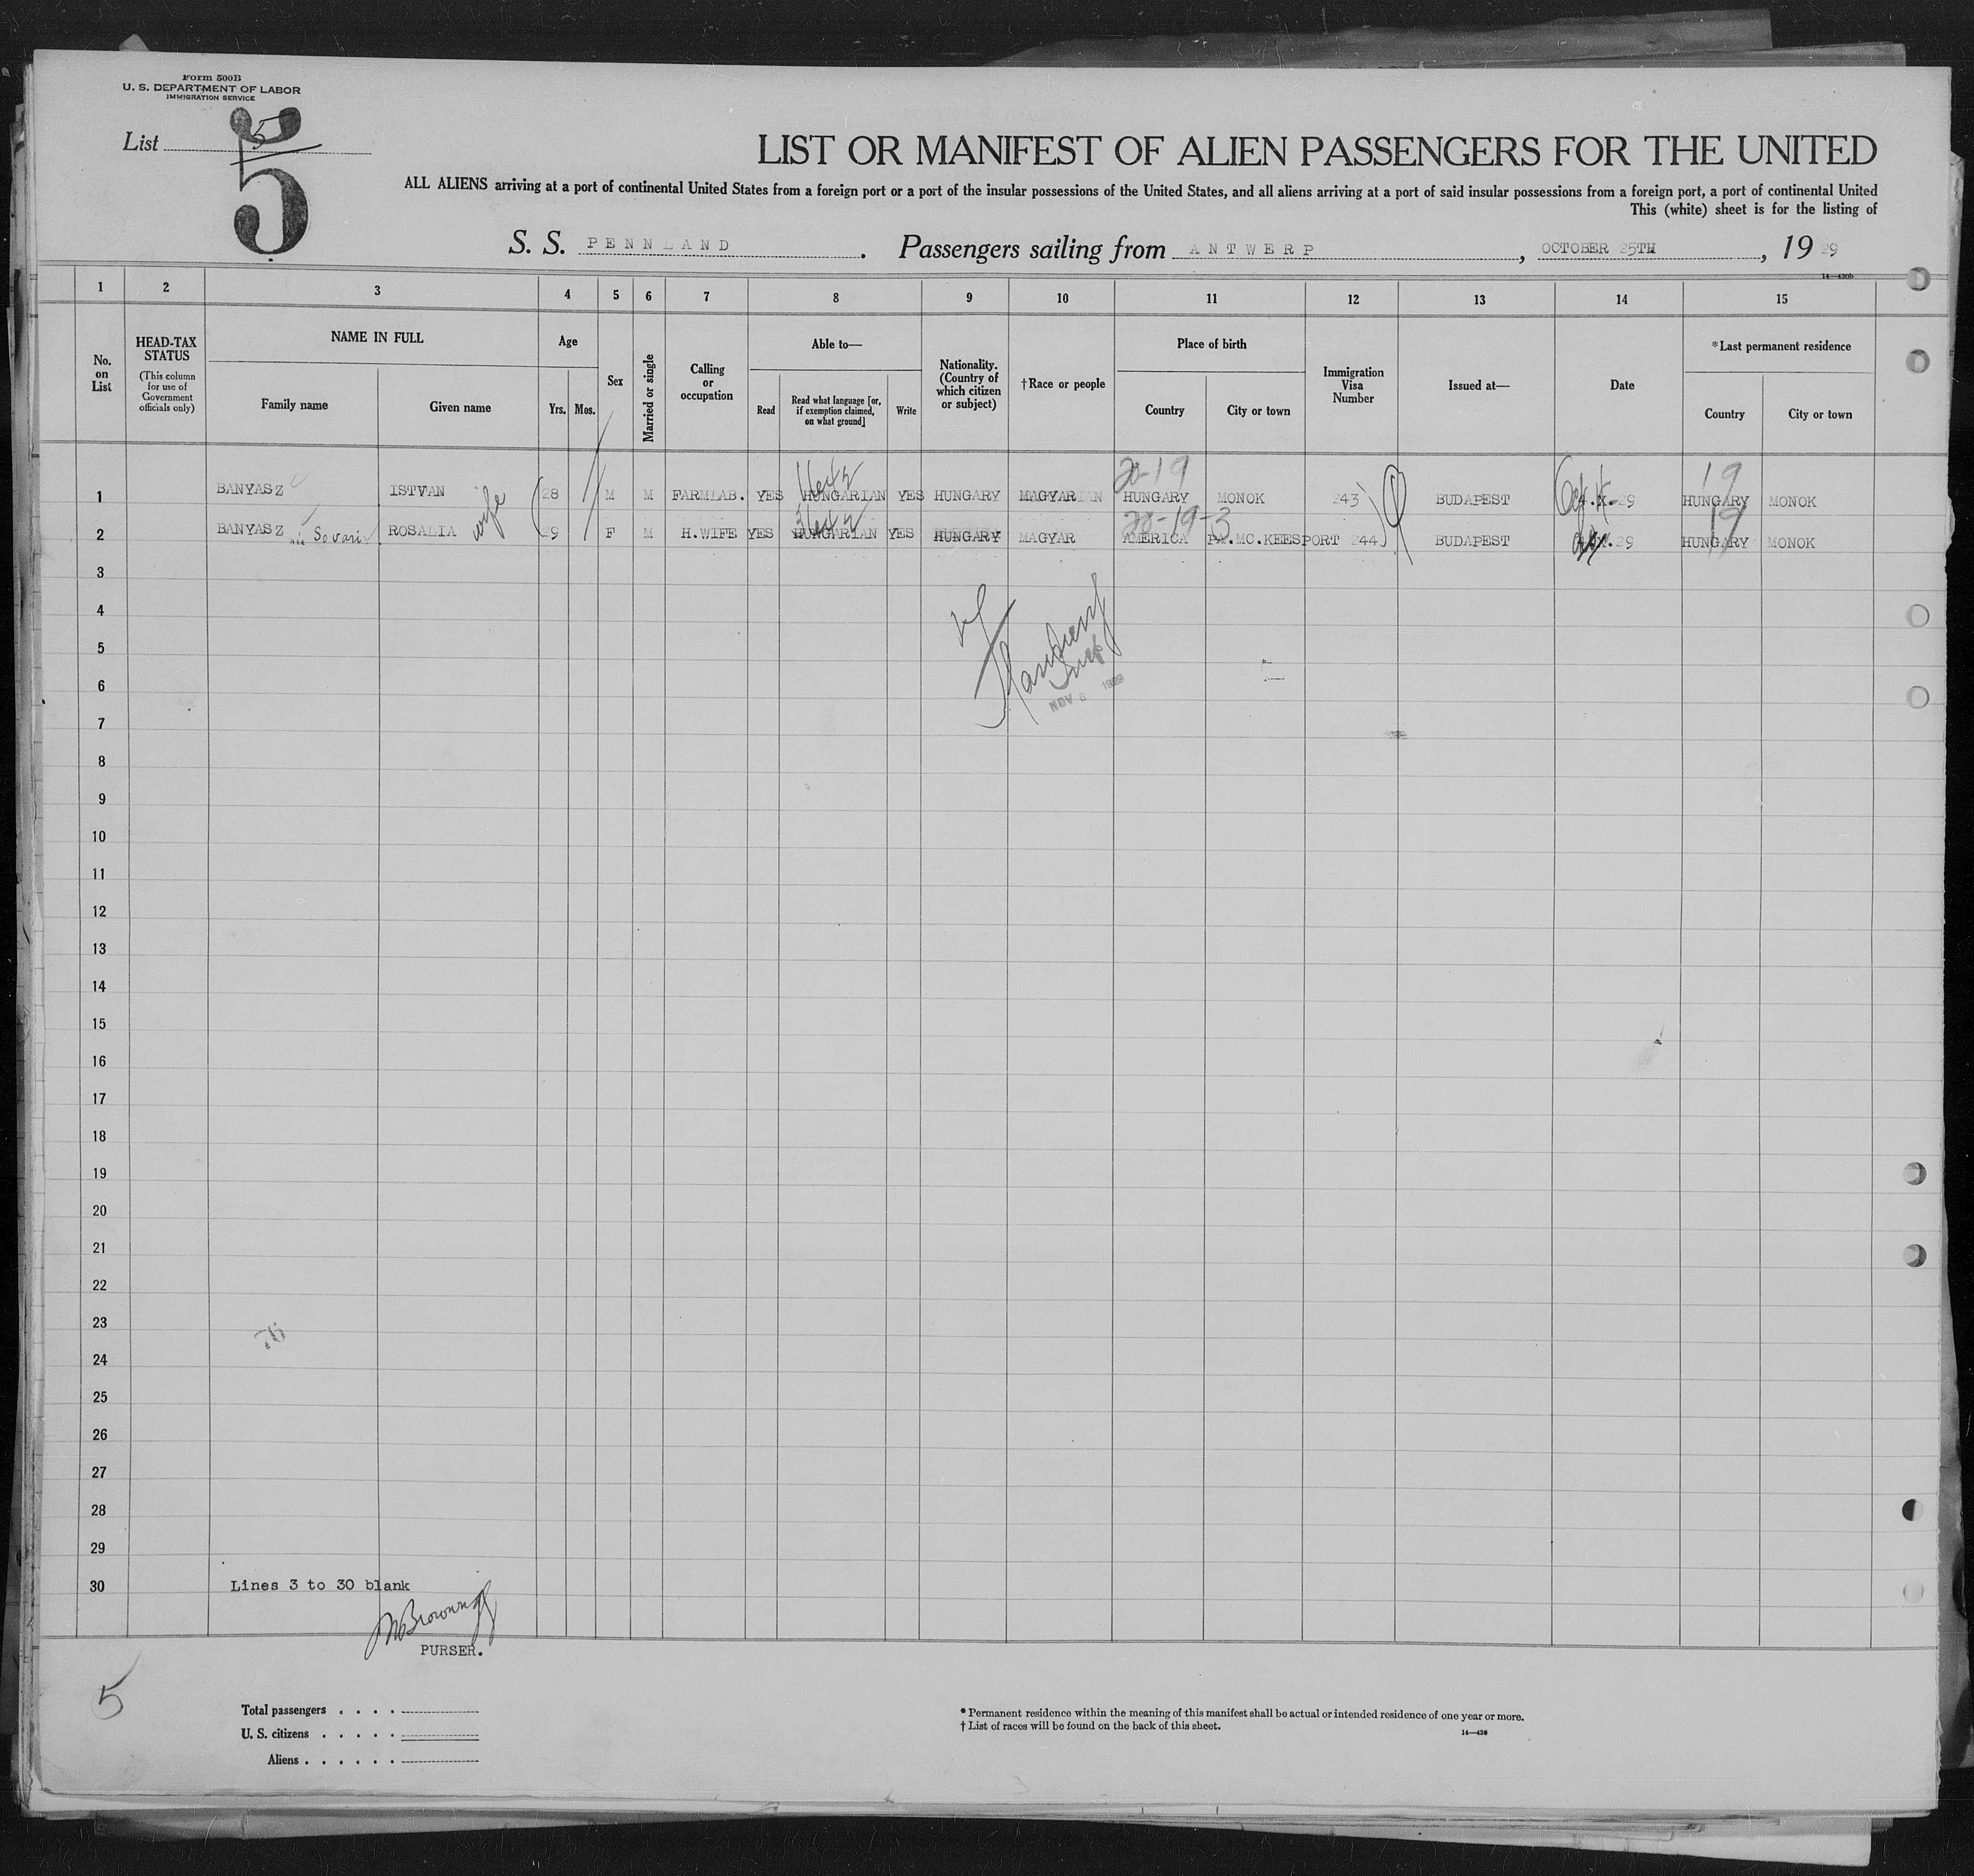 Form 500B
U. S. DEPARTMENT OF LABOR
IMMIGRATION SERVICE
List 5
5
LIST OR MANIFEST OF ALIEN PASSENGERS FOR THE UNITED
ALL ALIENS arriving at a port of continental United States from a foreign port or a port of the insular possessions of the United States, and all aliens arriving at a port of said insular possessions from a foreign port, a port of continental United
This (white) sheet is for the listing of
S. S. PENNLAND. Passengers sailing from ANTWERP, OCTOBER 25TH, 1929
14—430b
1 2 3 4 5 6 7 8 9 10 11 12 13 14 15
No. on List
HEAD-TAX STATUS
(This column for use of Government officials only)
NAME IN FULL
Family name
Given name
Age
Yrs.
Mos.
Sex
Married or single
Calling or occupation
Able to—
Read
Read what language [or, if exemption claimed, on what ground]
Write
Nationality. (Country of which citizen or subject)
†Race or people
Place of birth
Country
City or town
Immigration Visa Number
Issued at—
Date
*Last permanent residence
Country
City or town
20-19 19
1 BANYASZ ISTVAN 28 M M FARMLAB. YES HUNGARIAN YES HUNGARY MAGYAR HUNGARY MONOK 243 BUDAPEST 29 HUNGARY MONOK
20-19-3 19
2 BANYASZ Sovari ROSALIA wife 29 F M H.WIFE YES HUNGARIAN YES HUNGARY MAGYAR AMERICA PA.MC.KEESPORT 244 BUDAPEST 29 HUNGARY MONOK
3
4
5
6
NOV 6 1929
7
8
9
10
11
12
13
14
15
16
17
18
19
20
21
22
23
76
24
25
26
27
28
29
30 Lines 3 to 30 blank
PURSER.
5
Total passengers . . . .
U. S. citizens . . . . .
Aliens . . . . . .
* Permanent residence within the meaning of this manifest shall be actual or intended residence of one year or more.
† List of races will be found on the back of this sheet.
14—430